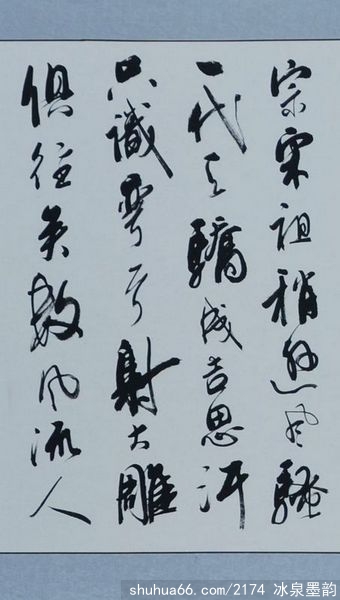 宗宋祖稍逊风骚
一代天骄成吉思汗
只識弯弓射大雕
俱往矣数风流人
shuhua66.com/2174 冰泉墨韵